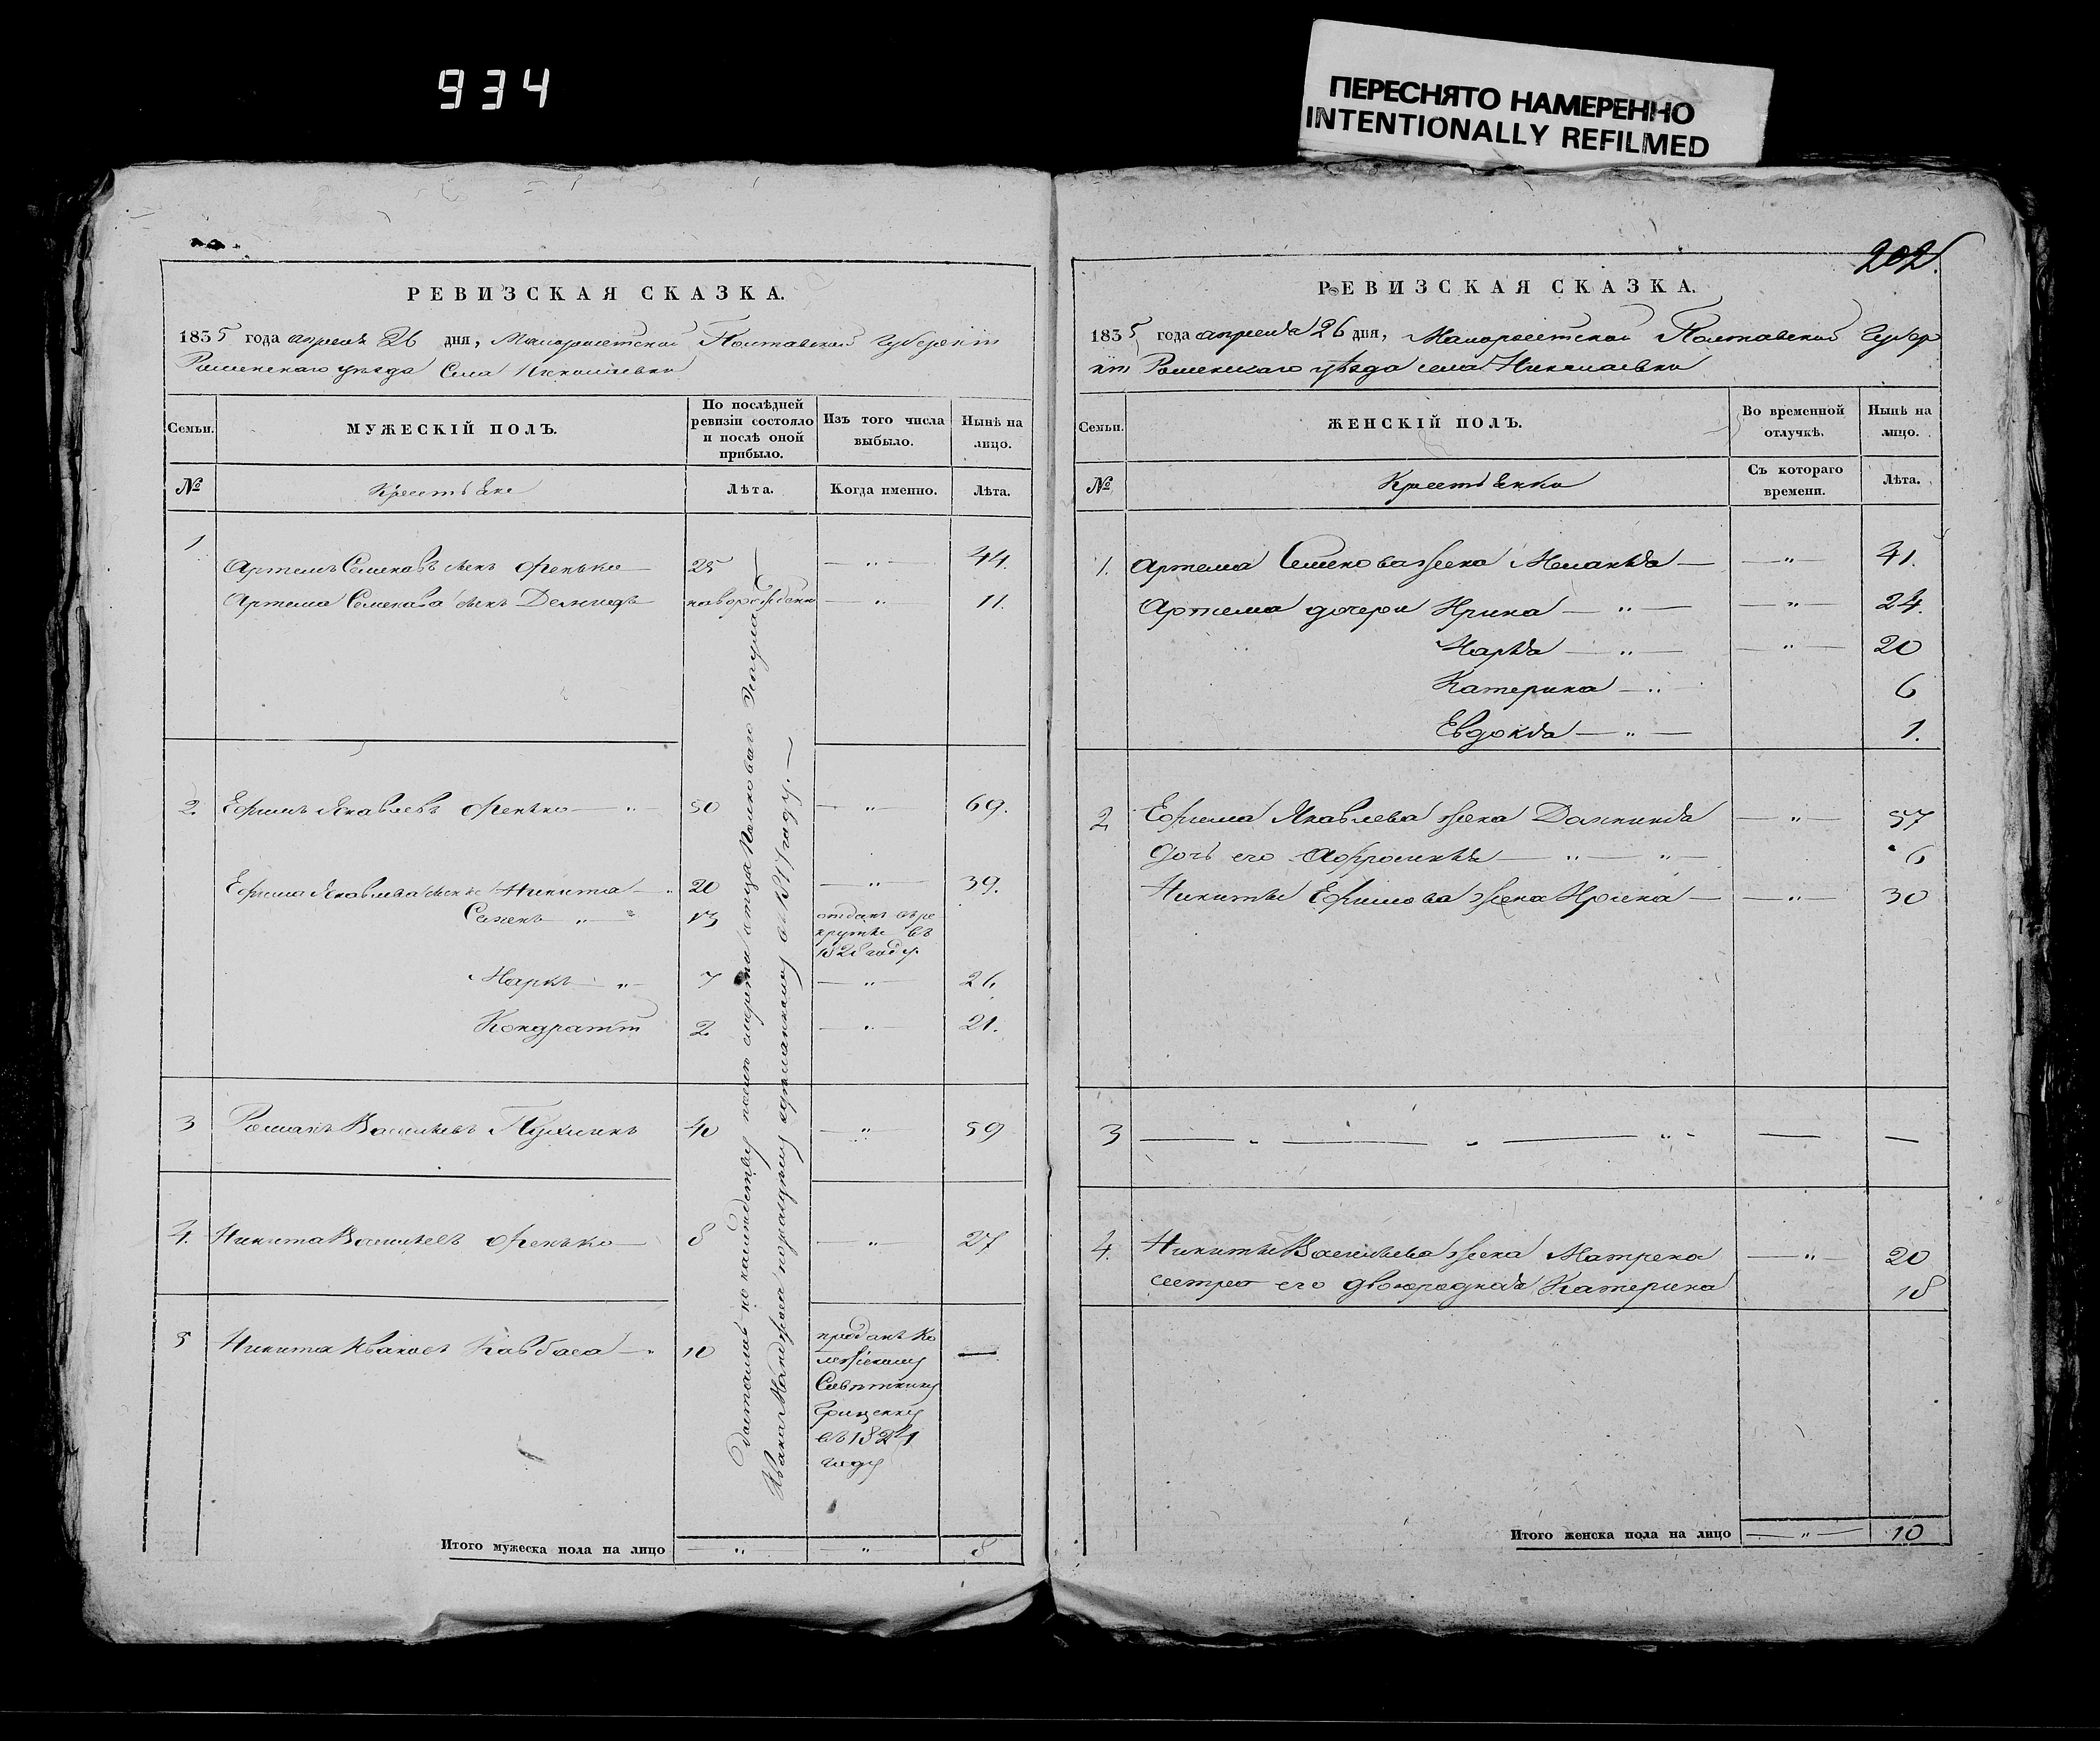 934
ПЕРЕСНЯТО НАМЕРЕННО
INTENTIONALLY REFILMED
РЕВИЗСКАЯ СКАЗКА.
1835 года апреля 26 дня, Малоросiйской Полтавской Губернiи
Роменского уезда Села Николаевки
Семьи.
МУЖЕСКІЙ ПОЛЪ.
По послѣдней ревизіи состояло и послѣ оной прибыло.
Изъ того числа выбыло.
Нынѣ на лицо.
№
Крестьяне
Лѣта.
Когда именно.
Лѣта.
1
Артемъ Семеновъ сынъ 25 — " — 44.
Артема Семенова сынъ Демидъ новорожденъ — " 11.
2. Ефимъ Яковлевъ — " — 50 — " — 69.
Ефима Яковлева сынъ Никита — " 20 — " — 39.
Семенъ " — " 13 отданъ въ ре
круты въ
1828 году.
Марко — " — 7 — " — 26
Кондратiй 2 — " — 21.
3 Романъ Васильевъ 40 — " — 59
4. Никита Васильевъ 8 — " — 27
5 Никита Ивановъ Ковбаса — " 10 проданъ Ко
лежскому
Советнику
Грищенку
въ 1824
году
—
Достались по наследству после смерти отца Полковаго Есаула
Ивана родному въ 1817 году. —
Итого мужеска пола на лицо — " — " 8
202
РЕВИЗСКАЯ СКАЗКА.
1835 года апреля 26 дня, Малоросiйской Полтавской Губер
нiи Роменского уѣзда села Николаевки
Семьи.
ЖЕНСКІЙ ПОЛЪ.
Во временной отлучкѣ.
Нынѣ на лицо.
№
Крестьянки
Съ котораго времени.
Лѣта.
1. Артема Семенова жена Меланья — — " — 41.
Артема дочери Ирина — " — — " — 24.
Марья — " — — " — 20
Катерина — " — 6
Евдокiя — " — 1.
2 Ефима Яковлева жена Домникiя — " — 57
Дочь его Афросинья — " — " — 6
Никиты Ефимова жена Ирина — — " — 30
3 — " — " — " — — —
4. Никиты Васильева жена Матрена — " — 20
сестра его двоюродная Катерина 18
Итого женска пола на лицо — " — 10